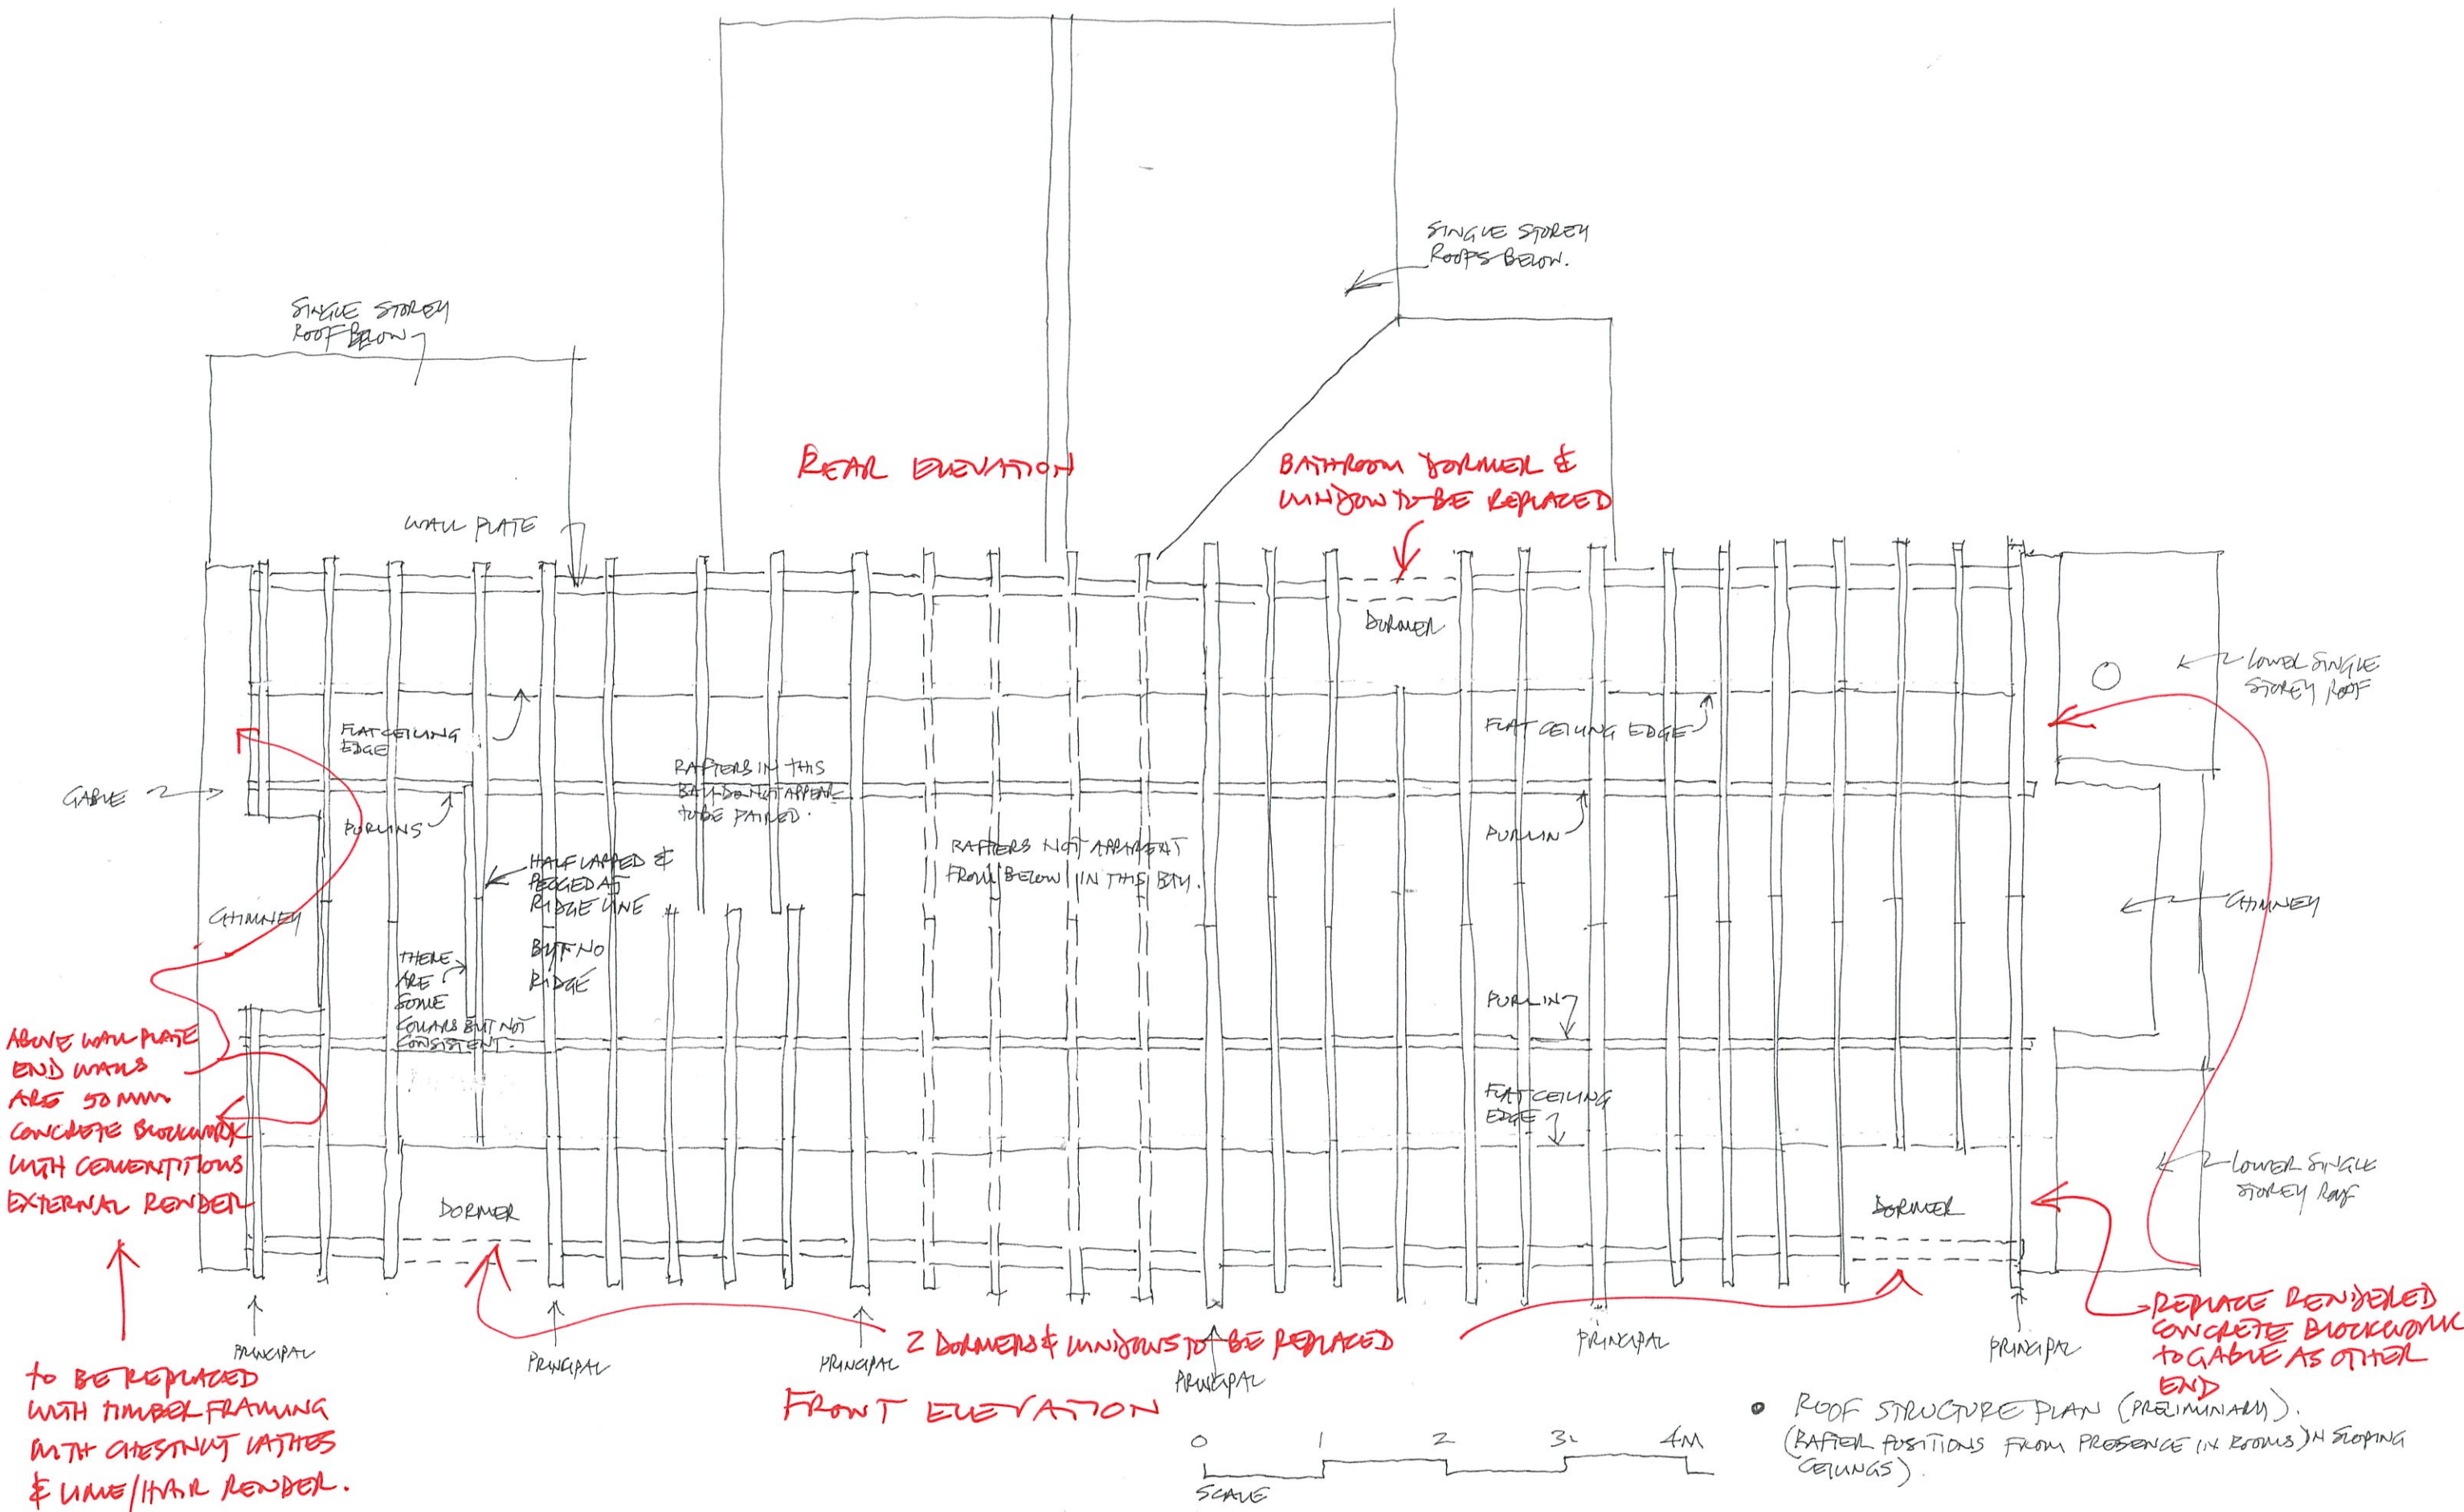 SINGLE STOREY
ROOFS BELOW.
SINGLE STOREY
ROOF BELOW
REAR ELEVATION
BATHROOM DORMER &
WINDOW TO BE REPLACED
WALL PLATE
DORMER
LOWER SINGLE
STOREY ROOF
FLAT CEILING
EDGE
FLAT CEILING EDGE
RAFTERS IN THIS
BAY DO NOT APPEAR
TO BE PAIRED.
GABLE
PURLINS
PURLIN
RAFTERS NOT APPARENT
FROM BELOW IN THIS BAY.
HALF LAPPED &
PEGGED AT
RIDGE LINE
BUT NO
RIDGE
CHIMNEY
CHIMNEY
THERE
ARE
SOME
COLLARS BUT NOT
CONSISTENT.
PURLIN
ABOVE WALL PLATE
END WALLS
ARE 50 MM
CONCRETE BLOCKWORK
WITH CEMENTITIOUS
EXTERNAL RENDER
FLAT CEILING
EDGE
LOWER SINGLE
STOREY ROOF
DORMER
DORMER
PRINCIPAL
PRINCIPAL
PRINCIPAL
2 DORMERS & WINDOWS TO BE REPLACED
PRINCIPAL
PRINCIPAL
PRINCIPAL
REPLACE RENDERED
CONCRETE BLOCKWORK
TO GABLE AS OTHER
END
TO BE REPLACED
WITH TIMBER FRAMING
WITH CHESTNUT LATHES
& LIME/HAIR RENDER.
FRONT ELEVATION
0 1 2 3 4M
SCALE
ROOF STRUCTURE PLAN (PRELIMINARY).
(RAFTER POSITIONS FROM PRESENCE IN ROOMS) IN SLOPING
CEILINGS).